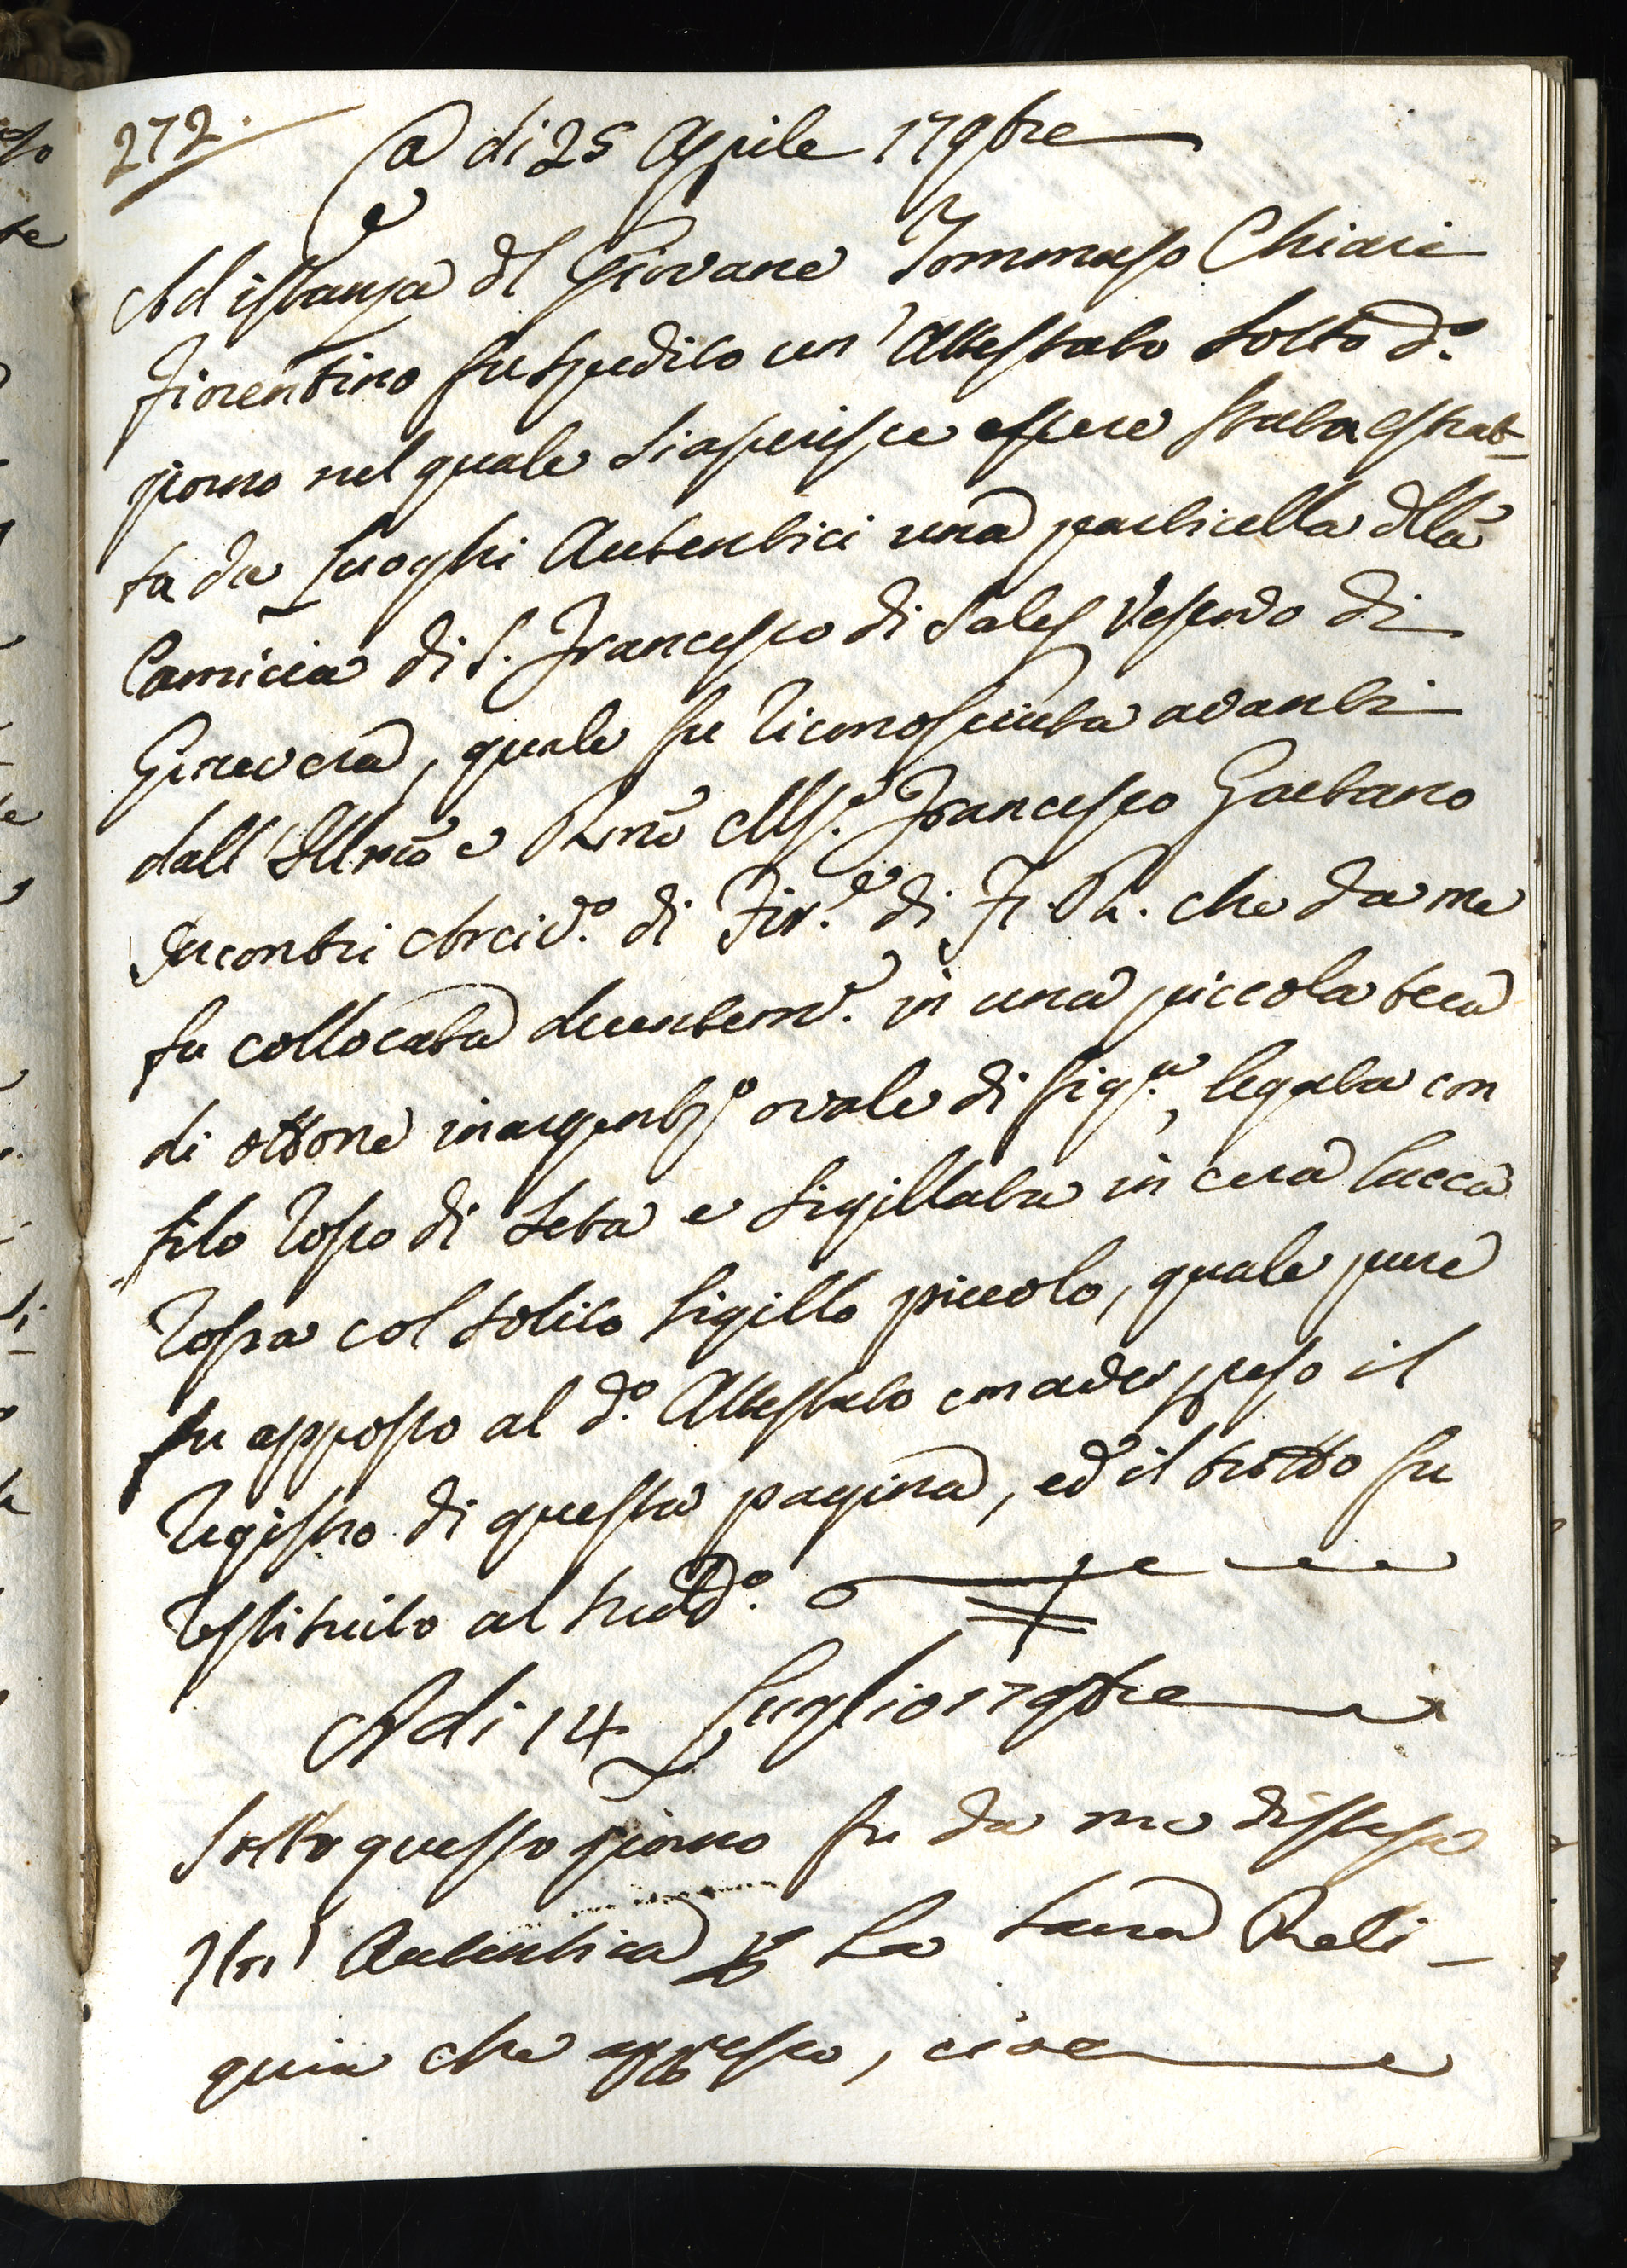 272.
A di 25 Aprile 179tre
Ad istanza dl Giovane Tommaso Chiari
Fiorentino fu spedito un' Attestato sotto do.
giorno nel quale si asperisce essere stata estrat-
ta da Luoghi Autentici una particella dlla
Camicia di S. Francesco di Sales Vescovo di
Ginevera, quale fu riconosciuta avanti
dall' Illmo e Rmo Msr. Francesco Gaetano
Incontri Arcivo. di Fire. di Fi. Ra. che da me
fu collocata decentemte. in una piccola teca
di ottone inargento ovale di figra, legata con
filo rosso di seta e sigillata in cera lacca
rossa col solito sigillo piccolo, quale pure
fu apposto al do. Attestato con aver preso il
registro di questa pagina, ed il tutto fu
restituito al sudo.
A di 14 Luglio 179tre
Sotto questo giorno fu da me distesa
Un' Autentica p La Sacra Reli-
quia che appresso, cioè